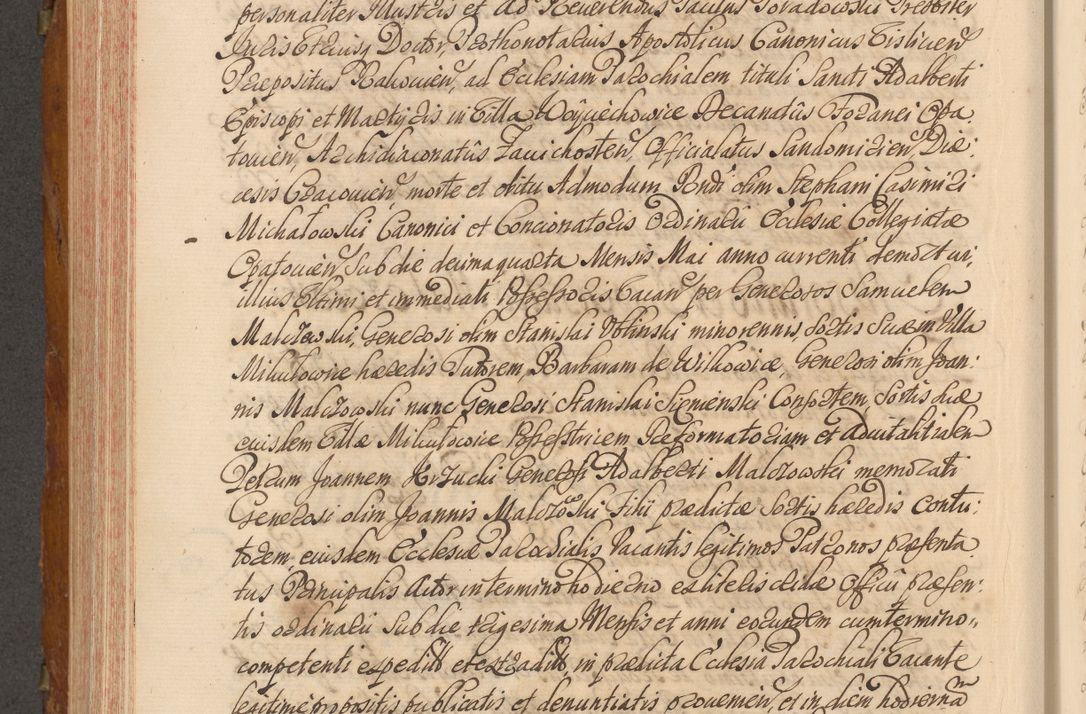 personaliter Illustris et Ad. Reverendus Paulus Poradowski Presbiter
Juris Utriusq Doctor, Prothonotarius Apostolicus Canonicus Visliciens
Præpositus Rakovien, ad Ecclesiam Parochialem tituli Sancti Adalberti
Episcopi et Martyris in Villa Woyciechowice Decanatûs Foranei Opa
tovien, Archidiaconatûs Zavichosten, Officialatus Sandomirien, Diæ:
cesis Cracovien, morte et obitu Admodum Rndi olim Stephani Casimiri
Michałowski, Canonici et Concionatoris Ordinarii Ecclesiæ Collegiatæ
Opatovien, Sub die decima quarta Mensis Mai anno currenti demortui,
illius Ultimi et immediati Possessoris Vacan, per Generosos Samuelem
Malczewski, Generosi olim Stanislai Oblinski minorennis, Sortis Suæ in Villa
Mikułowice hæredis Tutorem, Barbaram de Wilkowice, Generosi olim Joan:
nis Malczowski nunc Generosi Stanislai Siemienski Consortem, Sortis duæ
eiusdem Villæ Mikułowice Possesstricem Reformatoriam et Advitalitialem
Petrum Joannem Krzucki Generosi Adalberti Malczowski memorati
Generosi olim Joannis Malczowski Filii præditæ Sortis hæredis contu:
torem, eiusdem Ecclesiæ Parochialis Vacantis legitimos Patronos præsenta
tus Principalis Actor in termino hodierno ex literis cridæ Officii præsen:
tis ordinarii Sub die trigesima Mensis et anni eorundem cum termino
competenti expeditis et extraditis in prædicta Ecclesia Parochiali Vacante
legitime propositis publicatis et denuntiatis provenien, et in diem hodiernam